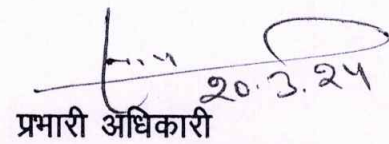 20.3.24
प्रभारी अधिकारी